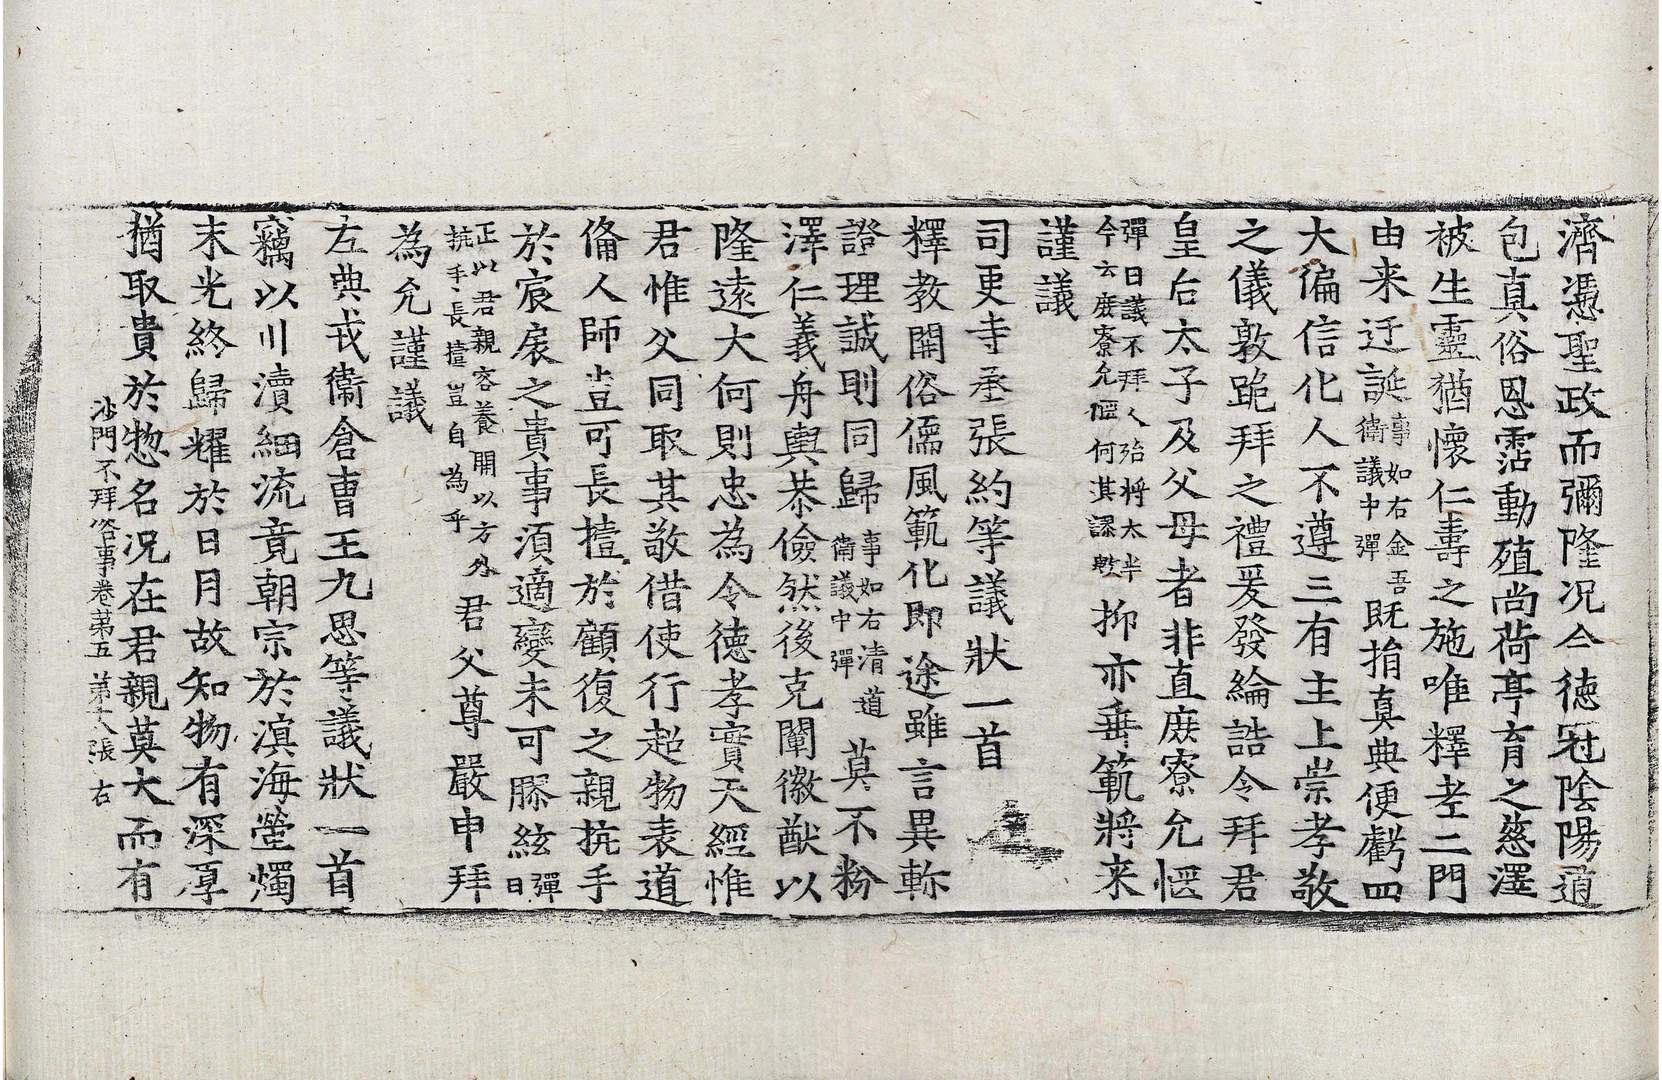 濟憑聖政而彌隆况今德冠陰陽道
包真俗恩霑動殖尚荷亭育之慈澤
被生靈猶懷仁壽之施唯釋孝二門
由来迂誕事如右金吾衛議中彈既揹真典便虧四
大偏信化人不遵三有主上崇孝敬
之儀敦跪拜之禮爰發綸誥令拜君
皇后太子及父母者非直庶寮允愜
彈曰議不拜人殆将太半今云庶寮允愜何其謬歟抑亦垂範将来
謹議
司更寺丞張約等議狀一首
釋教開俗儒風範化即途雖言異軫
證理誠則同歸事如右清道衛議中彈莫不粉
澤仁義舟輿恭儉然後克闡徽猷以
隆遠大何則忠為令德孝實天經惟
君惟父同取其敬借使行超物表道
偹人師豈可長揎於顧復之親抗手
於扆展之貴事須適變未可膠絃彈曰
正以君親容養開以方外抗手長揎豈自為乎君父尊嚴申拜
為允謹議
左典戎衛倉曺王九思等議狀一首
竊以川瀆細流竟朝宗於溟海螢燭
末光終歸耀於日月故知物有深厚
猶取貴於惣名况在君親莫大而有
沙門不拜俗事卷苐五 苐十八張 右